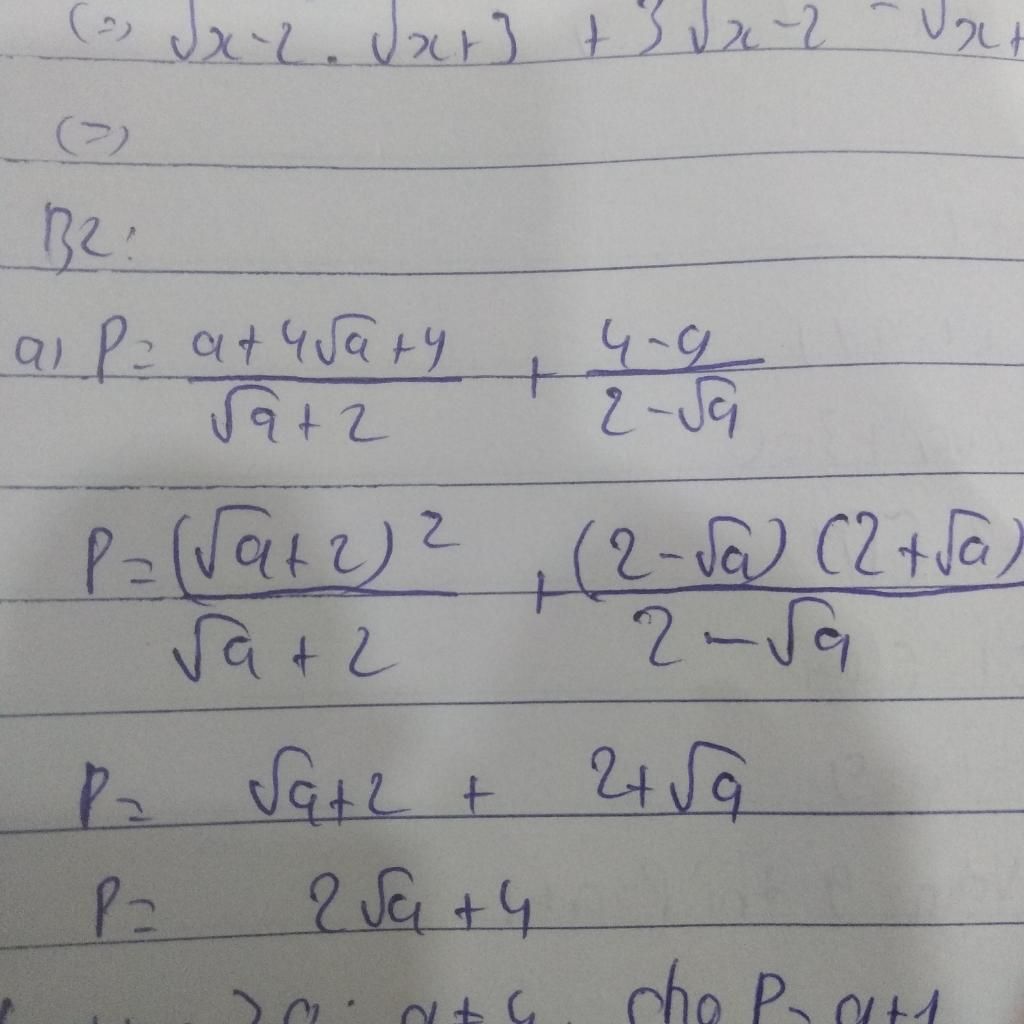 (=) √x-2 . √x+3 + 3√x-2 - √x+
(=)
B2:
a) P= (a+4√a+4)/(√a+2) + (4-a)/(2-√a)
P= (√a+2)²/(√a+2) + (2-√a)(2+√a)/(2-√a)
P= √a+2 + 2+√a
P= 2√a+4
cho P= a+1